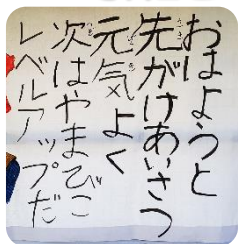 おはようと
先がけあいさつ
元気よく
次はやまびこ
レベルアップだ